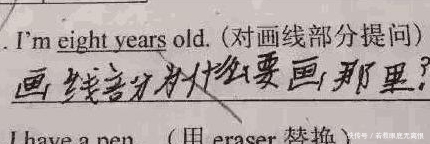 . I'm eight years old. (对画线部分提问)
画线部分为什么要画那里?
I have a pen. (用 eraser 替换)